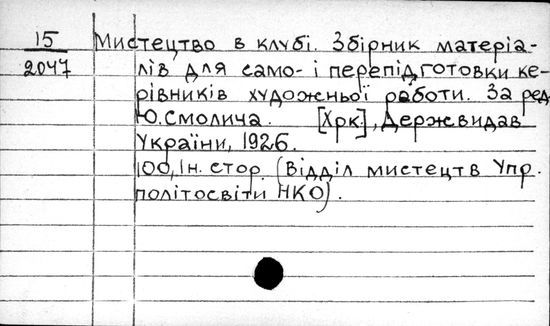 15
2047
Мистецтво в клубі. Збірник матеріа-
лів для само- і перепідготовки ке-
рівників художньої работи. За ред.
Ю. Смолича. [Хрк], Держвидав
України, 1926.
100, 1 н. стор. (Відділ мистецтв Упр.
політосвіти НКО).